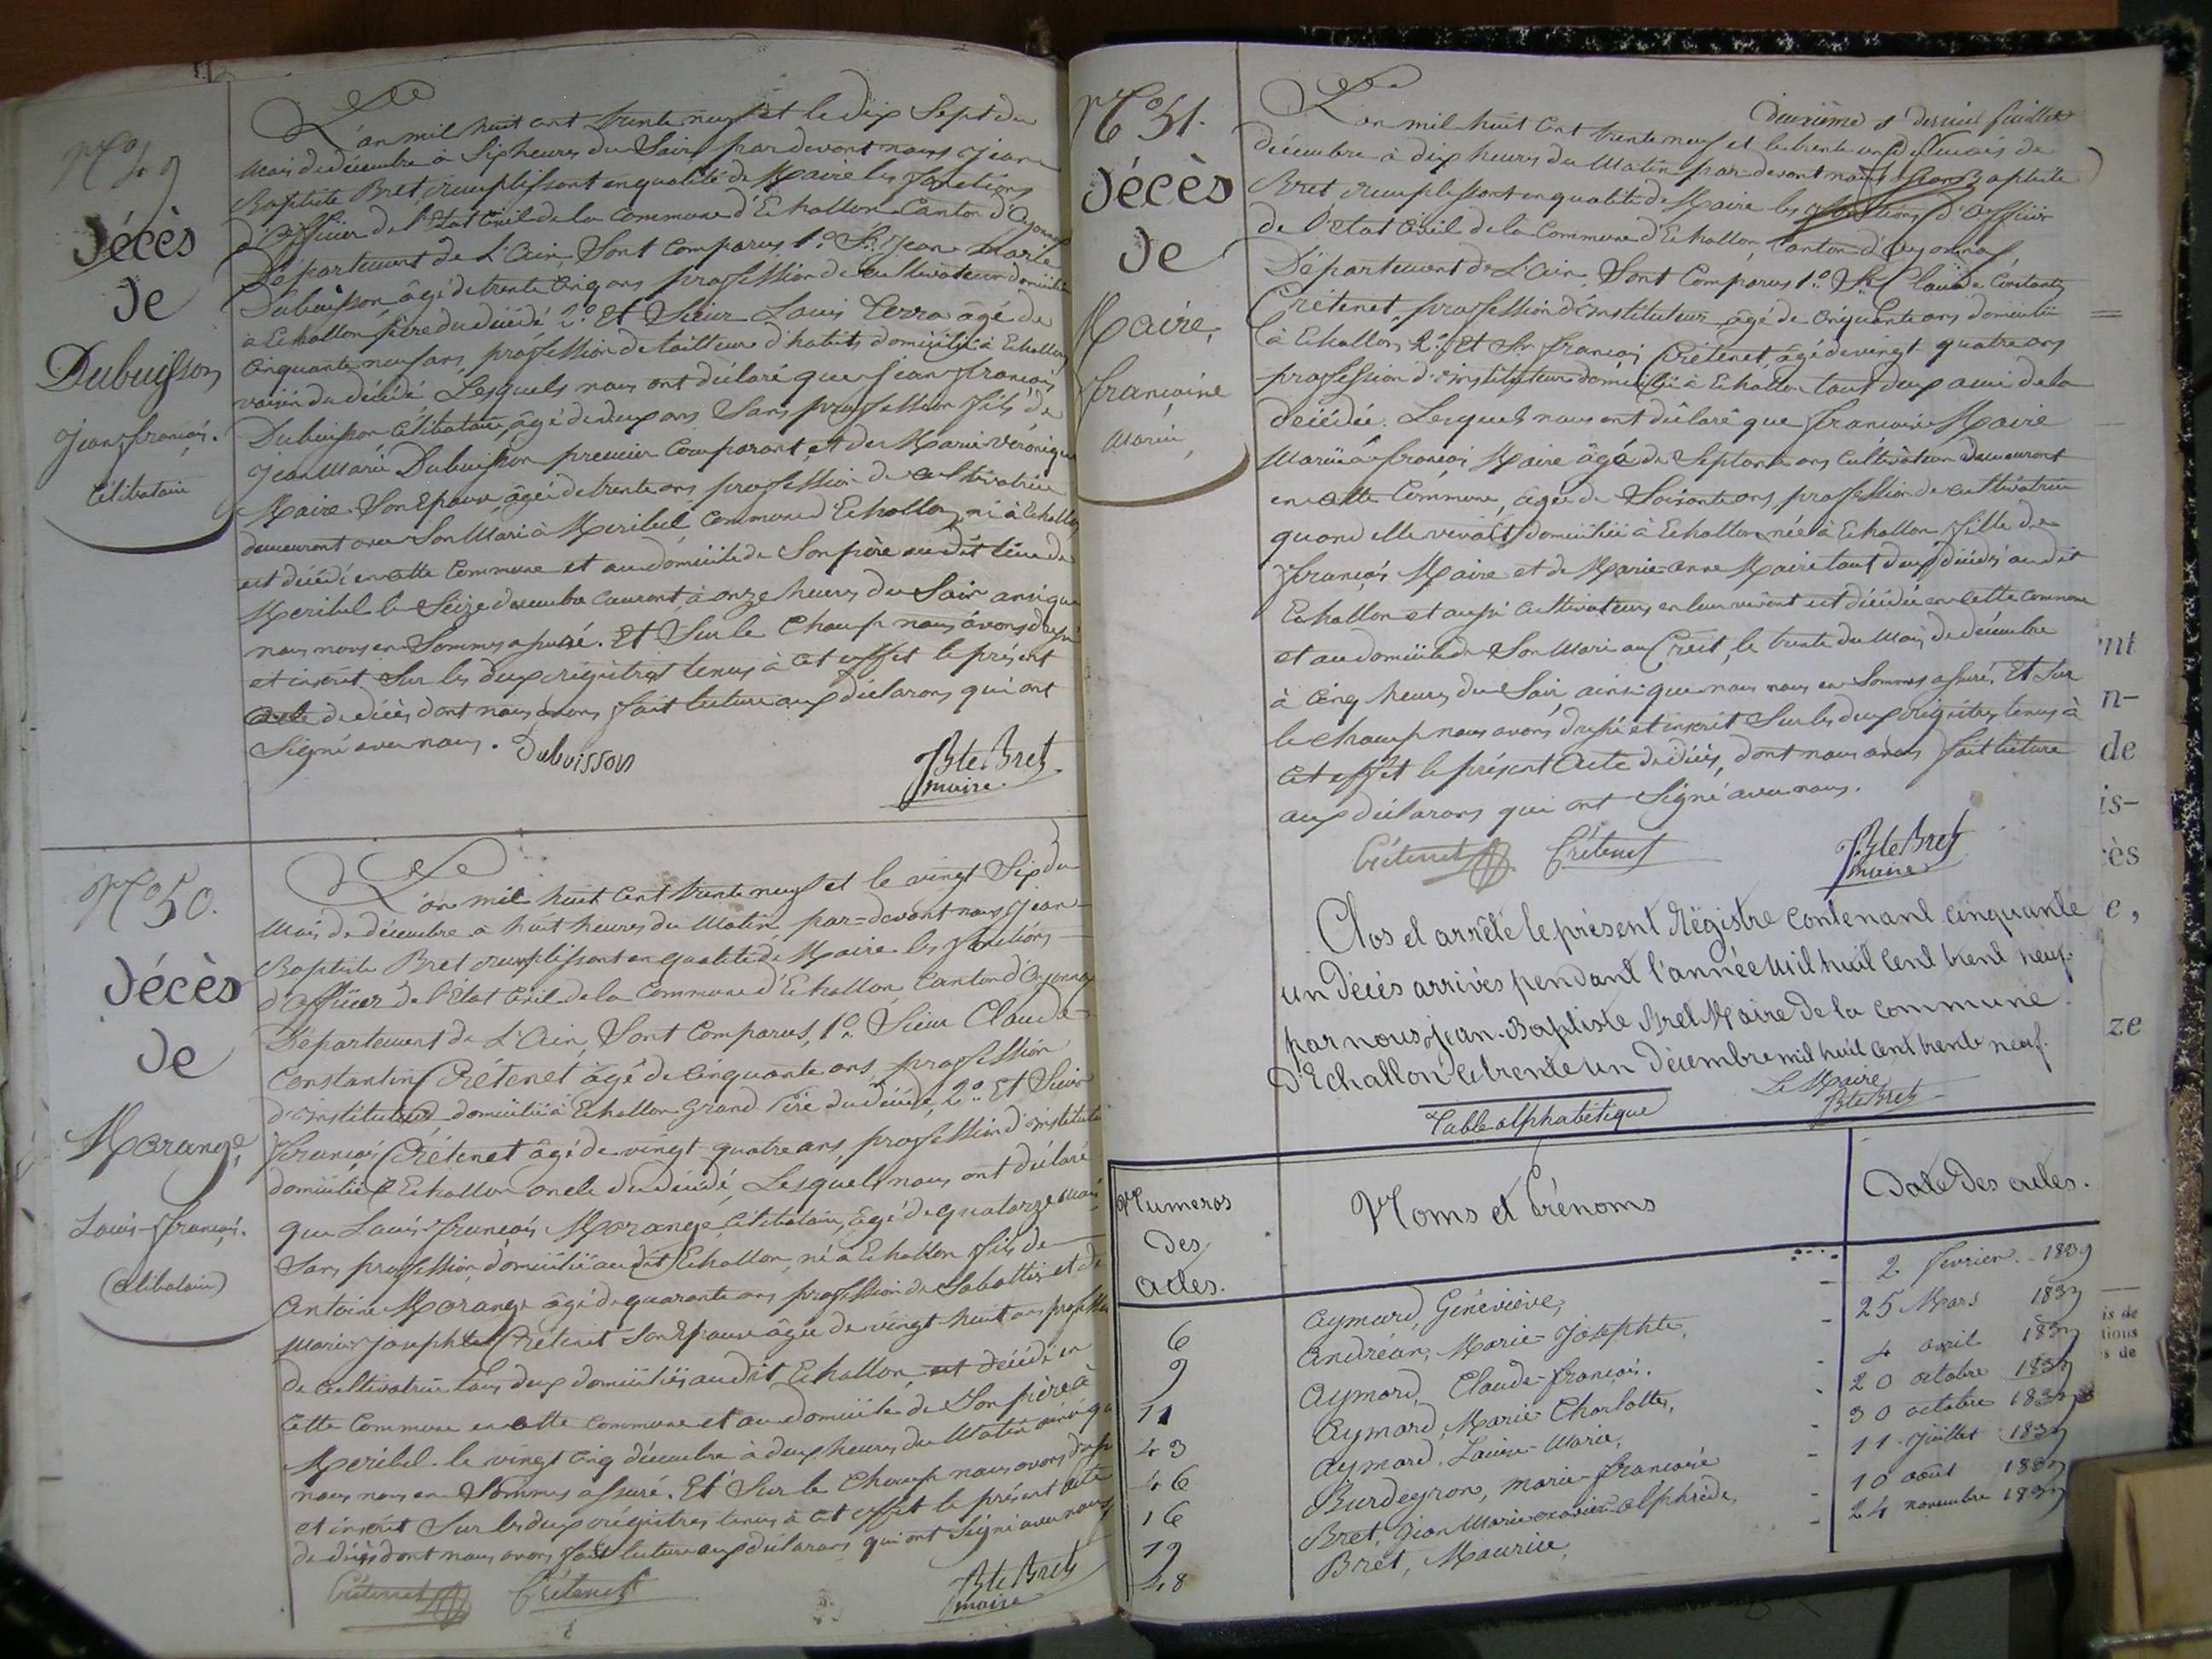 N° 49
Décès
de
Dubuisson
jean françois.
Célibataire
L'an mil huit cent trente neuf et le dix Sept du
Mois de décembre à Six heures du Soir par devant nous jean
Baptiste Bret remplissant en qualité de Maire les fonctions
d'officier de l'Etat Civil de la commune d'Echallon Canton d'Oyonnax
Département de L'Ain, Sont Comparus 1° Sr. Jean Marie
Dubuisson, âgé de trente cinq ans profession de cultivateur domicilié
à Echallon père du décédé 2° Et Sieur Louis Perra âgé de
Cinquante neuf ans, profession de tailleur d'habits domicilié à Echallon
voisin du décédé Lesquels nous ont déclaré que jean françois
Dubuisson Célibataire, âgé de deux ans Sans profession fils de
Jean Marie Dubuisson premier Comparant et de Marie Véronique
Maire Son Epouse, âgée de trente ans profession de cultivatrice
demeurant avec Son Mari à Meribel commune d'Echallon, né à Echallon
est décédé en cette Commune et au domicile de Son père au dit lieu de
Meribel le Seize décembre courant, à onze heures du Soir ainsi que
nous nous en Sommes assuré. Et Sur le Champ nous avons dressé
et inscrit Sur les deux régistres tenus à cet effet le présent
acte de décès dont nous avons fait lecture aux déclarans qui ont
Signé avec nous. Dubuisson
JBte Bret
maire
N° 50.
Décès
de
Marange,
Louis-françois.
(Célibataire)
L'an mil huit cent trente neuf et le vingt Six du
Mois de décembre a huit heures du Matin, par=devant nous, jean
Baptiste Bret remplissant en qualité de Maire les fonctions
d'officier de l'Etat Civil de la Commune d'Echallon Canton d'Oyonnax
Département de L'Ain, Sont Comparus, 1° Sieur Claude
Constantin Crétenet âgé de Cinquante ans, profession
d'instituteur, domicilié à Echallon Grand Père du décédé, 2° Et Sieur
François Crétenet âgé de vingt quatre ans, profession d'instituteur
domicilié à Echallon oncle du décédé, Lesquels nous ont déclaré
que Louis françois Marange, Célibataire, âgé de quatorze mois
Sans profession, domicilié au dit Echallon, né à Echallon fils de
Antoine Marange âgé de quarante ans profession de Sabottier et de
Marie Josephte Crétenet Son Epouse âgée de vingt huit ans profession
de Cultivatrice tous deux domiciliés au dit Echallon, est décédé en
Cette Commune en cette commune et au domicile de Son père à
Meribel. le vingt cinq décembre à deux heures du Matin ainsi que
nous nous en Sommes assuré. Et Sur le Champ nous avons dressé
et inscrit Sur les deux régistres tenus à cet effet le présent acte
de décès dont nous avons fait lecture aux déclarans qui ont Signé avec nous
Crétenet Crétenet
JBte Bret
maire
N° 51.
Décès
de
Maire,
françoise
Mariée,
deuxième & dernier feuillet
L'an mil huit Cent trente neuf et le trente un du mois de
décembre à dix heures du Matin par-devant nous jean Baptiste
Bret, remplissant en qualité de Maire les fonctions d'officier
de l'état Civil de la Commune d'Echallon, Canton d'Oyonnax
Département de L'Ain, Sont Comparus 1° Sr. Claude Constantin
Crétenet profession d'instituteur, âgé de cinquante ans domicilié
à Echallon, 2° Et Sr. françois Crétenet, âgé de vingt quatre ans
profession d'instituteur domicilié à Echallon tous deux amis de la
décédée. Lesquels nous ont déclaré que françoise Maire
Mariée à françois Maire âgé de Septante ans Cultivateur demeurant
en cette Commune, âgée de Soixante ans, profession de cultivatrice
quand elle vivait, domiciliée à Echallon née à Echallon fille de
françois Maire et de Marie-anne Maire tous deux décédés au dit
Echallon et aussi cultivateurs en leur vivant est décédée en cette commune
et au domicile de Son Mari au Crest, le trente du Mois de décembre
à cinq heures du Soir, ainsi que nous nous en Sommes assuré, Et Sur
le Champ nous avons dressé et inscrit Sur les deux régistres, tenus à
cet effet le présent acte de décès, dont nous avons fait lecture
aux déclarans qui ont Signé avec nous.
Crétenet Crétenet
JBte Bret
maire
Clos et arrêté le présent Régistre Contenant cinquante
un décès arrivés pendant l'année Mil huit Cent trent neuf.
par nous, jean-Baptiste Bret Maire de la commune
d'Echallon le trente un Décembre mil huit cent trente neuf.
Le Maire
JBte Bret
Table alphabétique
Numeros
des
actes.
Noms et Prénoms
Date Des actes.
6 Aymard, Géneviève, 2 fevrier 1839
9 Andréan, Marie-Josephte, 25 Mars 1839
11 Aymard, Claude-françois. 4 avril 1839
43 Aymard Marie Charlotte, 20 octobre 1839
46 Aymard, Louise-Marie, 30 octobre 1839
16 Burdeyron, marie-francoise 11 juillet 1839
19 Bret, Jean Marie-xavier-alphrède, 10 août 1839
48 Bret, Maurice, 24 novembre 1839
ent
n-
de
is-
cès
e,
ze
is de
tions
s de